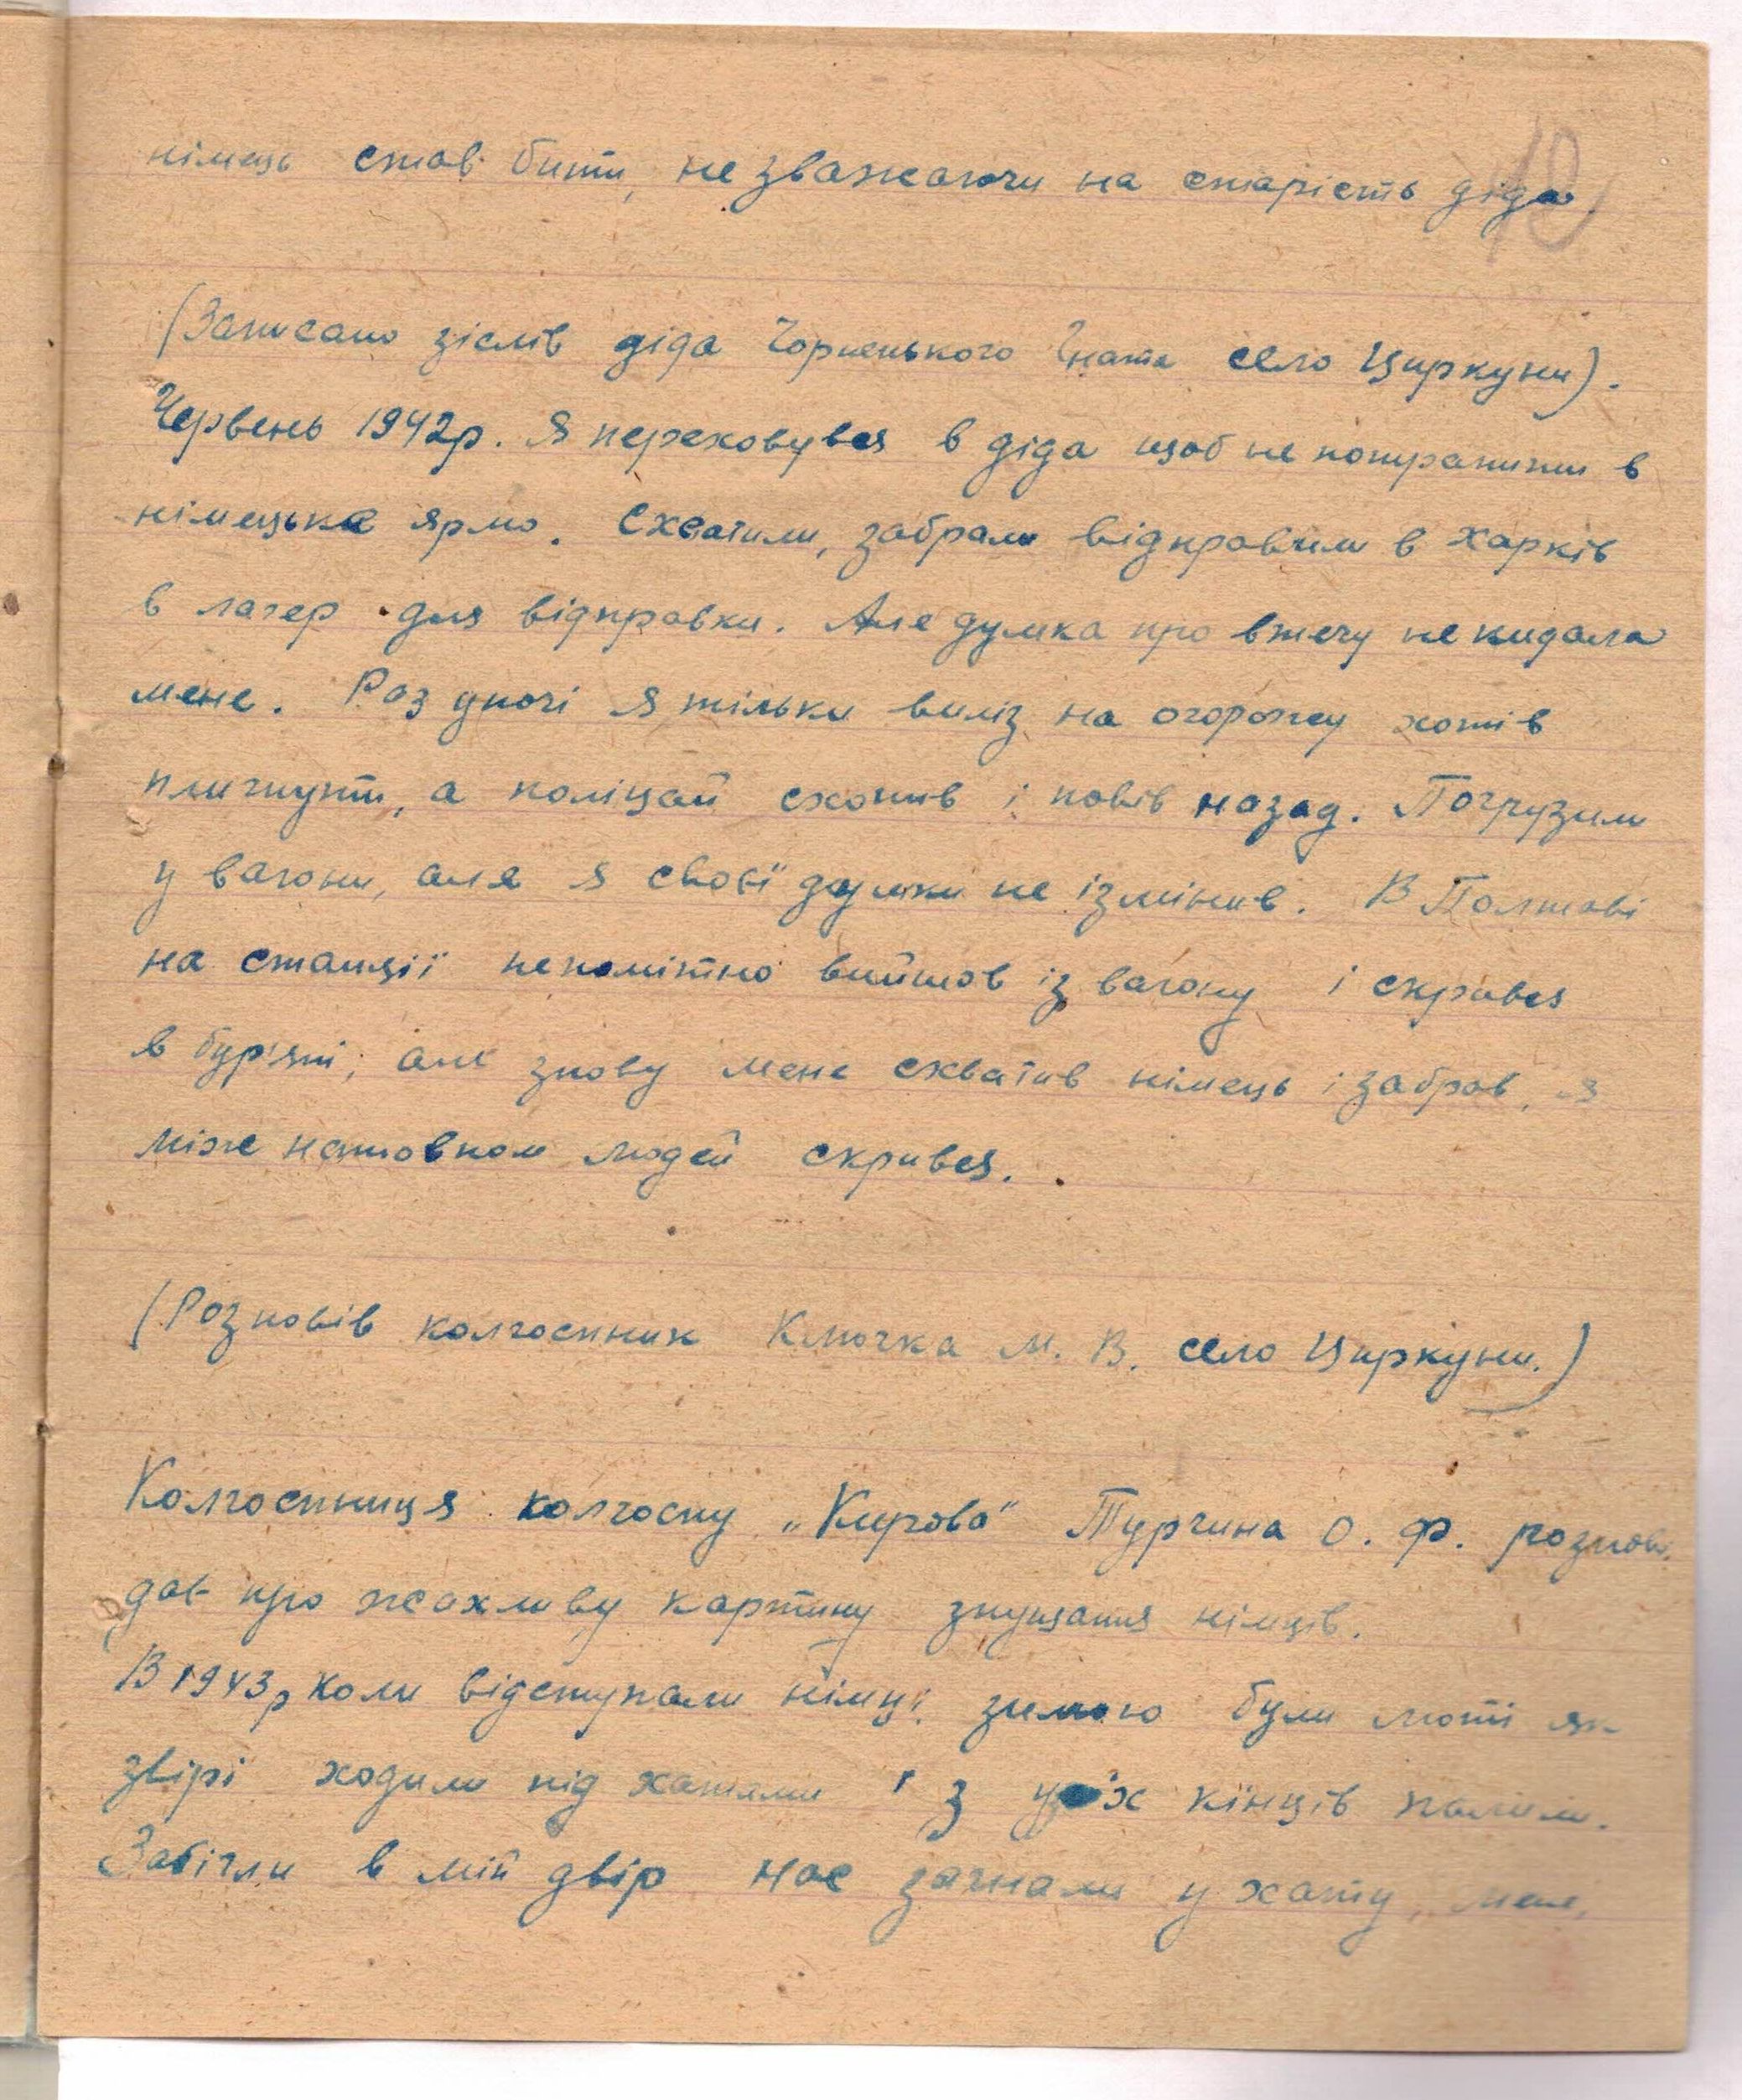 німець став бити, незважаючи на старість діда.
(Записано зіслів діда Чорненького Гната село Циркуни).
Червень 1942р. Я переховувся в діда щоб не потрапити в
німецьке ярмо. Схватили, забрали відправили в Харків
в лагер для відправки. Але думка про втечу не кидала
мене. Раз уночі я тільки виліз на огорожу хотів
плигнути, а поліцай схопив і повів назад. Погрузили
у вагони, але я своєї думки не ізмінив. В Полтаві
на станції непомітно вийшов із вагону і скрився
в бур'яні, але знову мене схватив німець і забрав, я
між натовпом людей скрився.
(Розповів колгоспник Клочка М. В. село Циркуни.)
Колгоспниця колгоспу „Кирова" Турчина О. Ф. розпові
дає про жахливу картину знущання німців.
В 1943р коли відступали німці, зимою були люті як
звірі ходили під хатами і з усіх кінців палили.
Забігли в мій двір нас загнали у хату, мене,